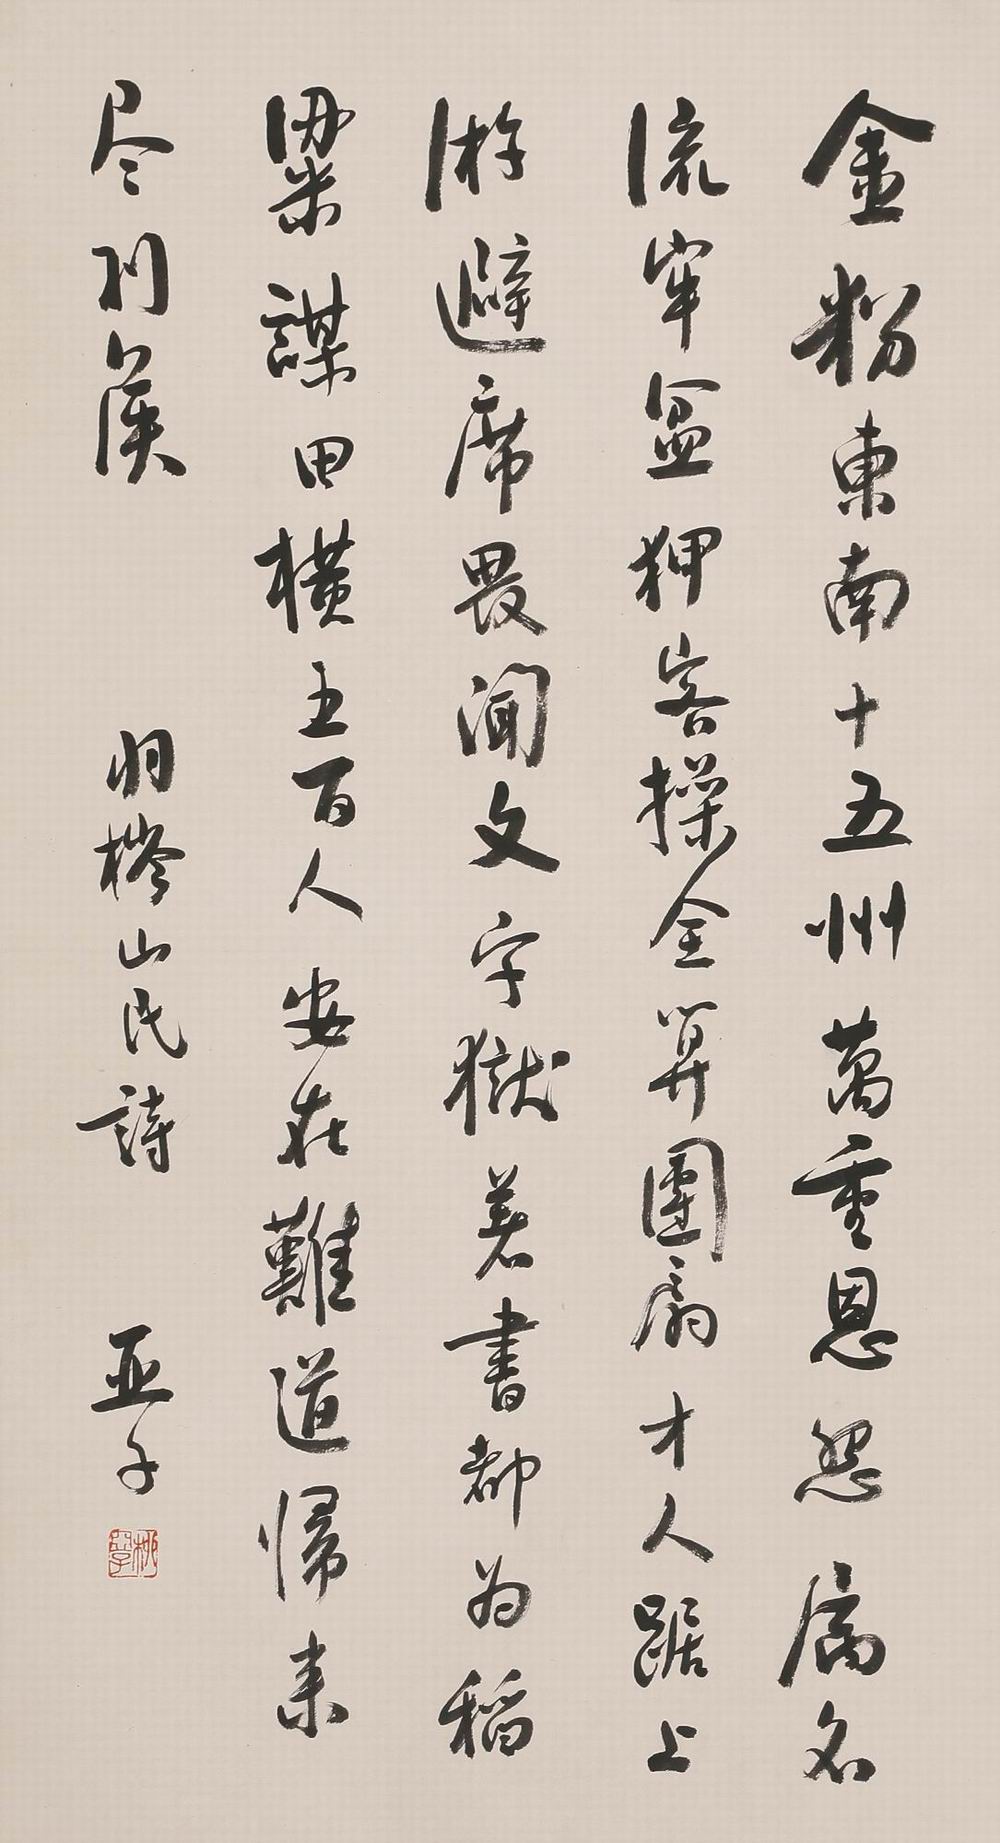 金粉東南十五州萬重恩怨属名
流牢盆狎客操全算團扇才人踞上
游避席畏聞文字獄著書都为稻
粱謀田横五百人安在難道歸来
尽列侯
羽琌山民詩 亚子